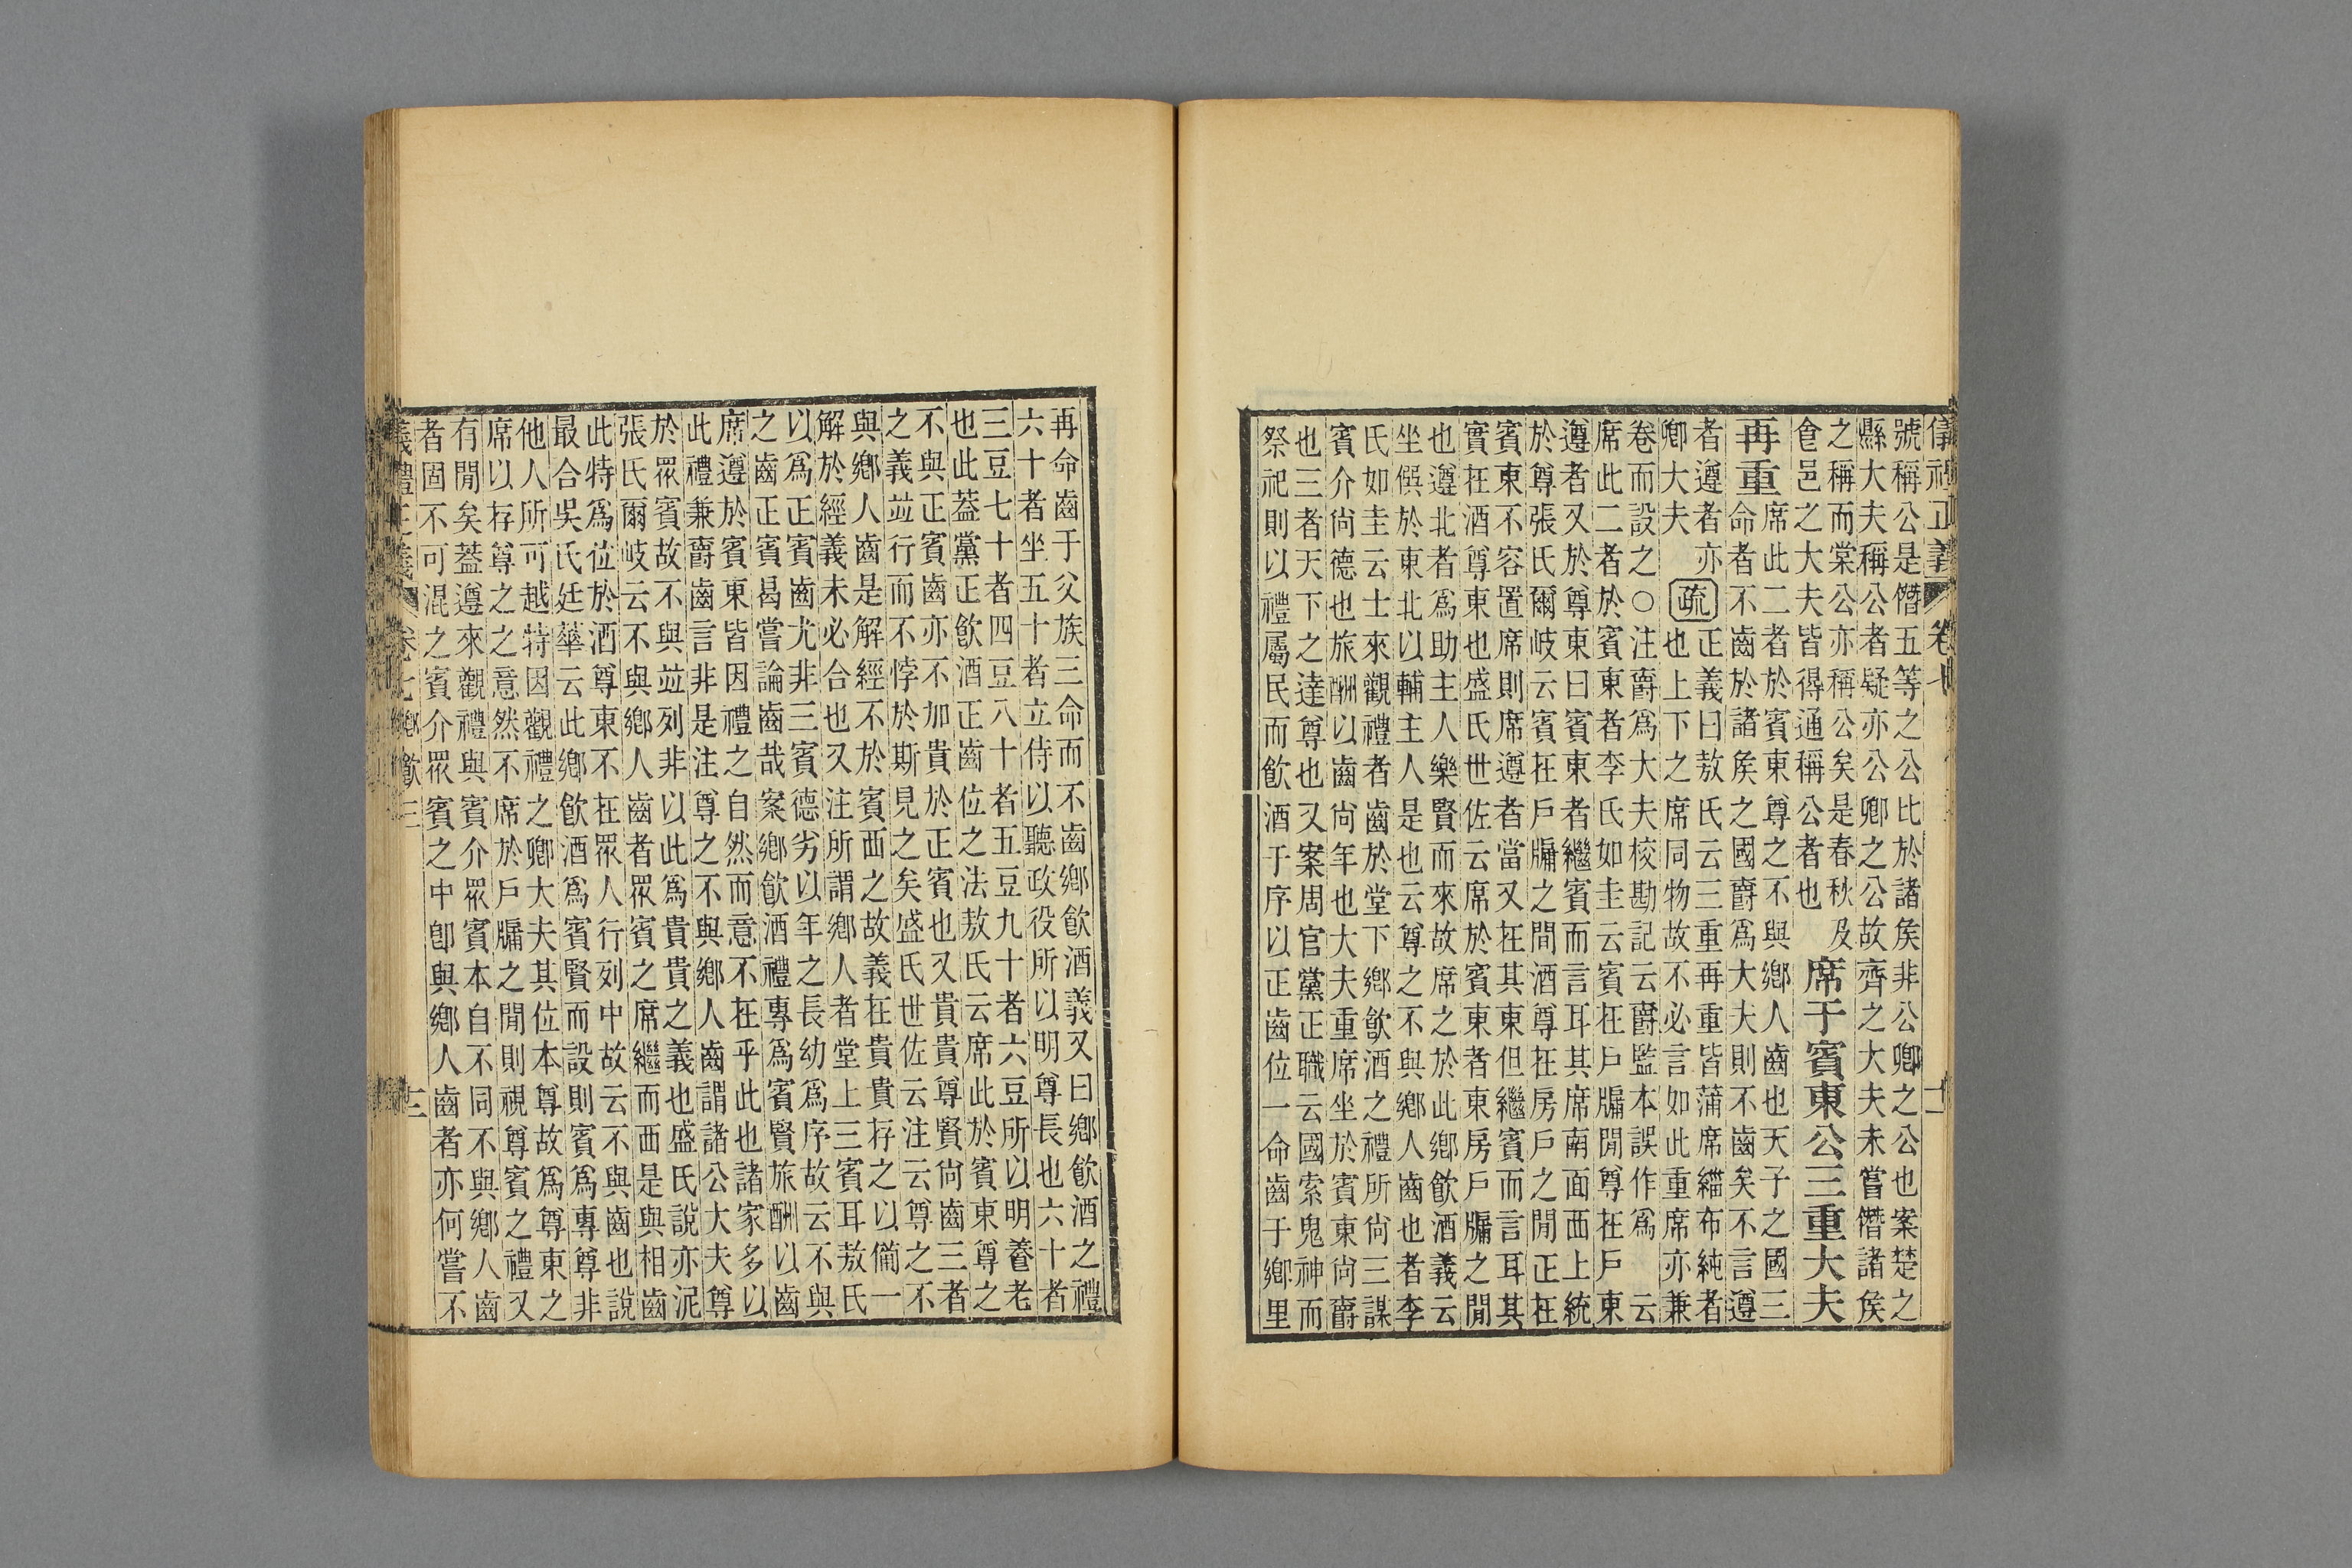 儀禮正義 卷七
號稱公是僭五等之公比於諸矦非公卿之公也案楚之
縣大夫稱公者疑亦公卿之公故齊之大夫未嘗僭諸矦
之稱而棠公亦稱公矣是春秋及
食邑之大夫皆得通稱公者也
席于賓東公三重大夫
再重
席此二者於賓東尊之不與鄉人齒也天子之國三
命者不齒於諸矦之國爵爲大夫則不齒矣不言遵
者遵者亦
卿大夫
疏
正義曰敖氏云三重再重皆蒲席緇布純者
也上下之席同物故不必言如此重席亦兼
卷而設之○注爵爲大夫校勘記云爵監本誤作爲 云
席此二者於賓東者李氏如圭云賓在戶牖閒尊在戶東
遵者又於尊東曰賓東者繼賓而言耳其席南面西上統
於尊張氏爾岐云賓在戶牖之間酒尊在房戶之閒正在
賓東不容置席則席遵者當又在其東但繼賓而言耳其
實在酒尊東也盛氏世佐云席於賓東者東房戶牖之閒
也遵北者爲助主人樂賢而來故席之於此鄉飲酒義云
坐僎於東北以輔主人是也云尊之不與鄉人齒也者李
氏如圭云士來觀禮者齒於堂下鄉飲酒之禮所尚三謀
賓介尚德也旅酬以齒尚年也大夫重席坐於賓東尚爵
也三者天下之達尊也又案周官黨正職云國索鬼神而
祭祀則以禮屬民而飲酒于序以正齒位一命齒于鄉里
再命齒于父族三命而不齒鄉飲酒義又曰鄉飲酒之禮
六十者坐五十者立侍以聽政役所以明尊長也六十者
三豆七十者四豆八十者五豆九十者六豆所以明養老
也此蓋黨正飲酒正齒位之法敖氏云席此於賓東尊之
不與正賓齒亦不加貴於正賓也又貴貴尊賢尚齒三者
之義竝行而不悖於斯見之矣盛氏世佐云注云尊之不
與鄉人齒是解經不於賓西之故義在貴貴存之以備一
解於經義未必合也又注所謂鄉人者堂上三賓耳敖氏
以爲正賓齒尤非三賓德劣以年之長幼爲序故云不與
之齒正賓曷嘗論齒哉案鄉飲酒禮專爲賓賢旅酬以齒
席遵於賓東皆因禮之自然而意不在乎此也諸家多以
此禮兼爵齒言非是注尊之不與鄉人齒謂諸公大夫尊
於眾賓故不與竝列非以此爲貴貴之義也盛氏說亦泥
張氏爾岐云不與鄉人齒者眾賓之席繼而西是與相齒
此特爲位於酒尊東不在眾人行列中故云不與齒也說
最合吳氏廷華云此鄉飲酒爲賓賢而設則賓爲專尊非
他人所可越特因觀禮之卿大夫其位本尊故爲尊東之
席以存尊之之意然不席於戶牖之閒則視尊賓之禮又
有閒矣蓋遵來觀禮與賓介眾賓本自不同不與鄉人齒
者固不可混之賓介眾賓之中卽與鄉人齒者亦何嘗不
義禮正義 卷七鄉飲三 十三